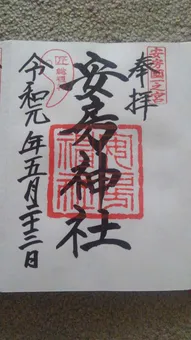 奉拝
安房國一之宮
安房神社
安房神社
令和元年五月二十二日